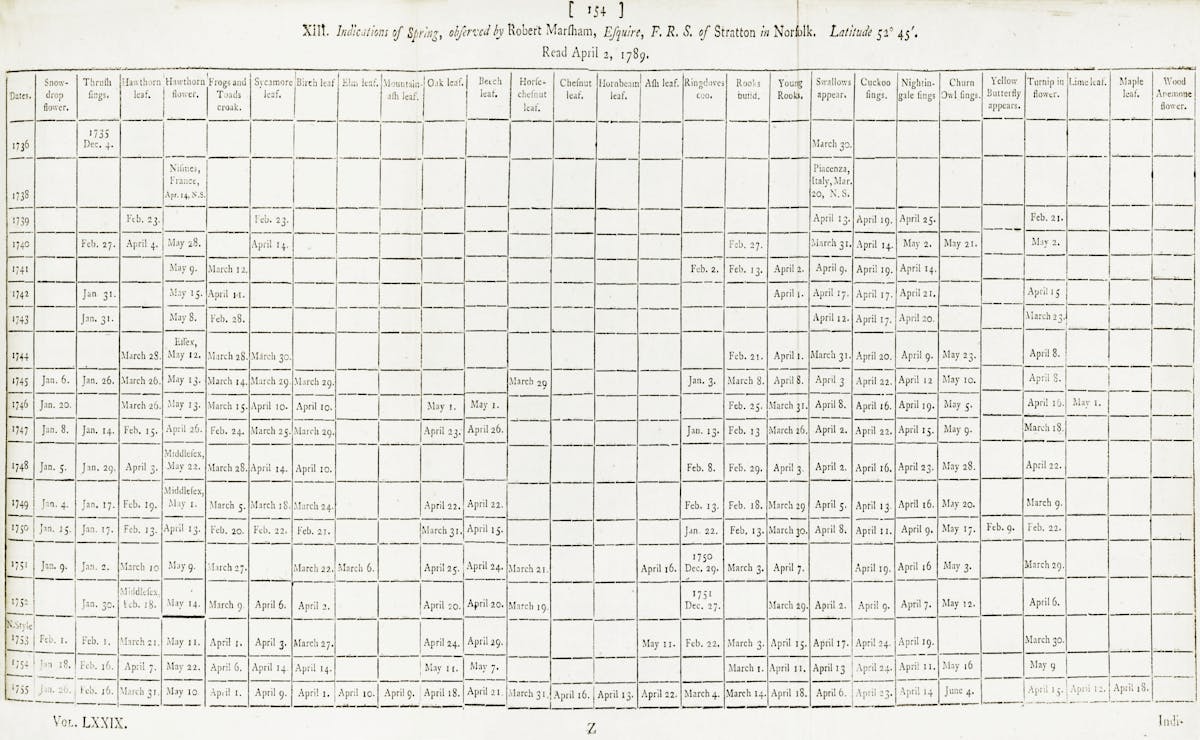 [ 154 ]
XIII. Indications of Spring, observed by Robert Marsham, Esquire, F. R. S. of Stratton in Norfolk. Latitude 52° 45′.
Read April 2, 1789.
Dates. Snow-drop flower. Thrush sings. Hawthorn leaf. Hawthorn flower. Frogs and Toads croak. Sycamore leaf. Birch leaf Elm leaf. Mountain-ash leaf. Oak leaf. Beech leaf. Horse-chesnut leaf. Chesnut leaf. Hornbeam leaf. Ash leaf. Ringdoves coo. Rooks build. Young Rooks. Swallows appear. Cuckoo sings. Nightin-gale sings Churn Owl sings. Yellow Butterfly appears. Turnip in flower. Lime leaf. Maple leaf. Wood Anemone flower.
1736 1735 Dec. 4. March 30.
1738 Nismes, France, Apr. 14, N.S. Piacenza, Italy, Mar. 20, N. S.
1739 Feb. 23. Feb. 23. April 13. April 19. April 25. Feb. 21.
1740 Feb. 27. April 4. May 28. April 14. Feb. 27. March 31. April 14. May 2. May 21. May 2.
1741 May 9. March 12. Feb. 2. Feb. 13. April 2. April 9. April 19. April 14.
1742 Jan. 31. May 15. April 11. April 1. April 17. April 17. April 21. April 15
1743 Jan. 31. May 8. Feb. 28. April 12. April 17. April 20. March 23.
1744 March 28. Essex, May 12. March 28. March 30. Feb. 21. April 1. March 31. April 20. April 9. May 23. April 8.
1745 Jan. 6. Jan. 26. March 26. May 13. March 14. March 29. March 29. March 29 Jan. 3. March 8. April 8. April 3 April 22. April 12 May 10. April 8.
1746 Jan. 20. March 26. May 13. March 15. April 10. April 10. May 1. May 1. Feb. 25. March 31. April 8. April 16. April 19. May 5. April 16. May 1.
1747 Jan. 8. Jan. 14. Feb. 15. April 26. Feb. 24. March 25. March 29. April 23. April 26. Jan. 13. Feb. 13 March 26. April 2. April 22. April 15. May 9. March 18.
1748 Jan. 5. Jan. 29. April 3. Middlesex, May 22. March 28. April 14. April 10. Feb. 8. Feb. 29. April 3. April 2. April 16. April 23. May 28. April 22.
1749 Jan. 4. Jan. 17. Feb. 19. Middlesex, May 1. March 5. March 18. March 24. April 22. April 22. Feb. 13. Feb. 18. March 29 April 5. April 13. April 16. May 20. March 9.
1750 Jan. 15. Jan. 17. Feb. 13. April 13. Feb. 20. Feb. 22. Feb. 21. March 31. April 15. Jan. 22. Feb. 13. March 30. April 8. April 11. April 9. May 17. Feb. 9. Feb. 22.
1751 Jan. 9. Jan. 2. March 10 May 9. March 27. March 22. March 6. April 25. April 24. March 21. April 16. 1750 Dec. 29. March 3. April 7. April 19. April 16 May 3. March 29.
1752 Jan. 30. Middlesex, Feb. 18. May 14. March 9. April 6. April 2. April 20. April 20. March 19. 1751 Dec. 27. March 29. April 2. April 9. April 7. May 12. April 6.
N. Style
1753 Feb. 1. Feb. 1. March 21. May 11. April 1. April 3. March 27. April 24. April 29. May 11. Feb. 22. March 3. April 15. April 17. April 24. April 19. March 30.
1754 Jan 18. Feb. 16. April 7. May 22. April 6. April 14 April 14. May 11. May 7. March 1. April 11. April 13 April 24. April 11. May 16 May 9
1755 Jan. 26. Feb. 16. March 31. May 10. April 1. April 9. April 1. April 10. April 9. April 18. April 21. March 31. April 16. April 13. April 22. March 4. March 14. April 18. April 6. April 23. April 14 June 4. April 15. April 12. April 18.
VOL. LXXIX. Z Indi-